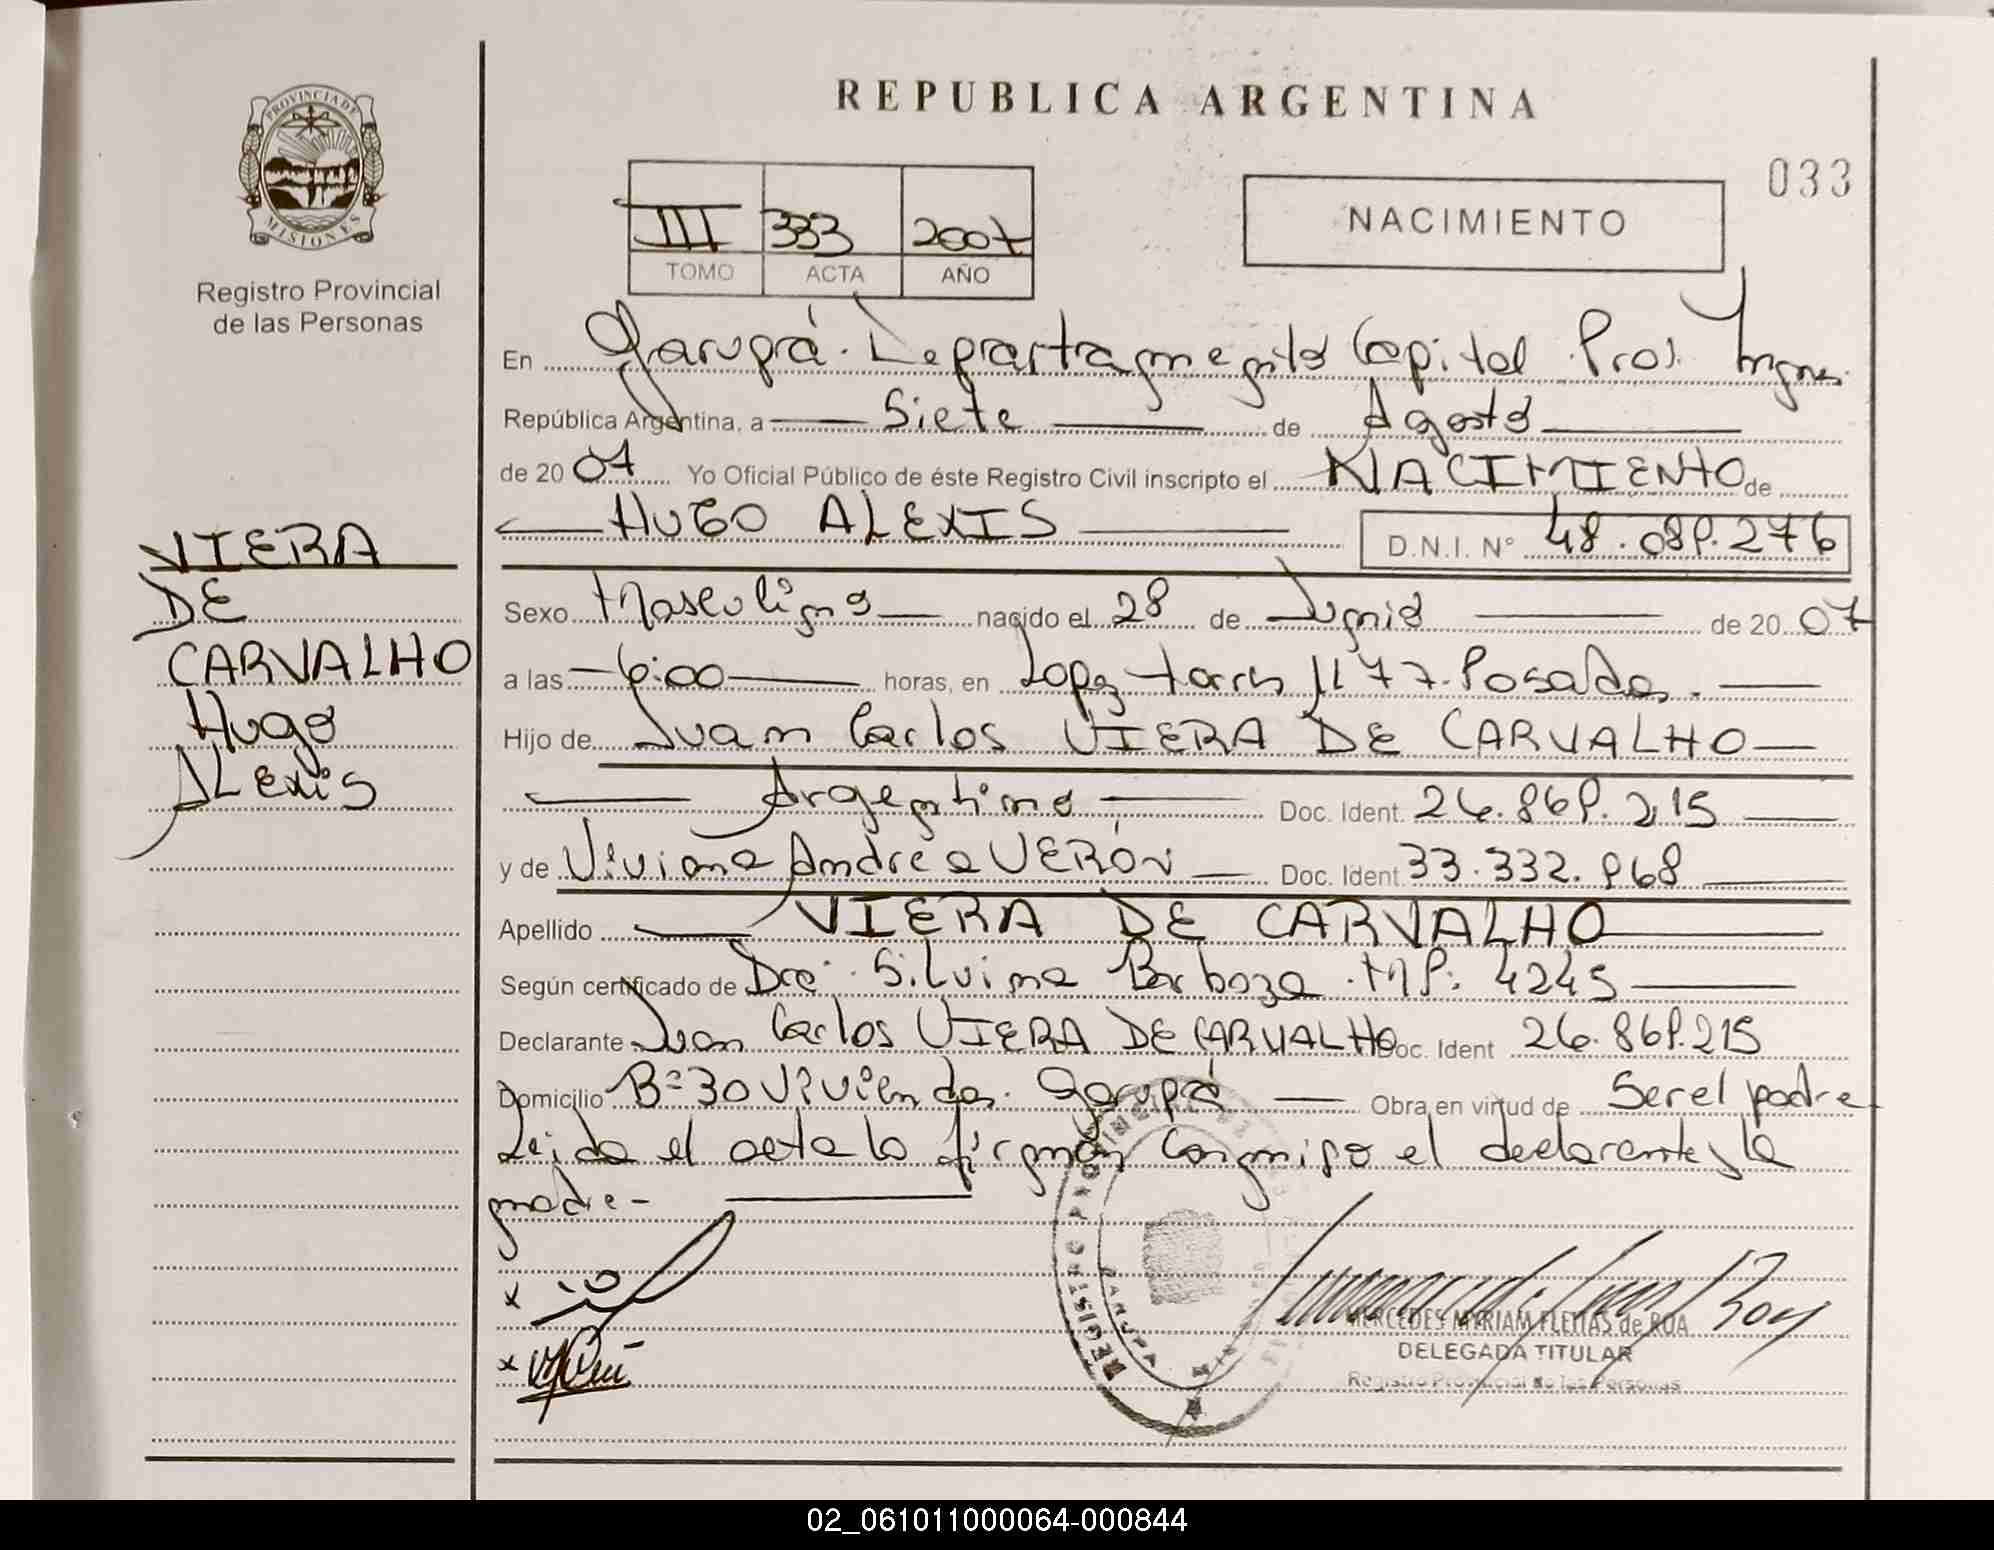 PROVINCIA DE
MISIONES
Registro Provincial
de las Personas
VIERA
DE
CARVALHO
Hugo
ALexis
REPUBLICA ARGENTINA
033
III 333 2007
TOMO ACTA AÑO
NACIMIENTO
En Garupá. Departamento Capital Prov. Mnes.
República Argentina, a Siete de Agosto
de 2007 Yo Oficial Público de éste Registro Civil inscripto el NACIMIENTO de
HUGO ALEXIS D.N.I. N° 48.089.276
Sexo Masculino nacido el 28 de Junio de 2007
a las 6:00 horas, en Lopez Torres 1177. Posadas.
Hijo de Juan Carlos VIERA DE CARVALHO
Argentino Doc. Ident. 26.869.215
y de Viviana Andrea VERÓN Doc. Ident. 33.332.968
Apellido VIERA DE CARVALHO
Según certificado de Dra. Silvina Barboza. MP: 4245
Declarante Juan Carlos VIERA DE CARVALHO Doc. Ident 26.869.215
Domicilio B= 30 Viviendas. Garupá Obra en virtud de Ser el padre
Leida el acta la firman conmigo el declarante y la
madre-
x
x
REGISTRO PROVINCIAL
GARUPA
MERCEDES MYRIAM FLEITAS de ROA
DELEGADA TITULAR
Registro Provincial de las Personas
02_061011000064-000844